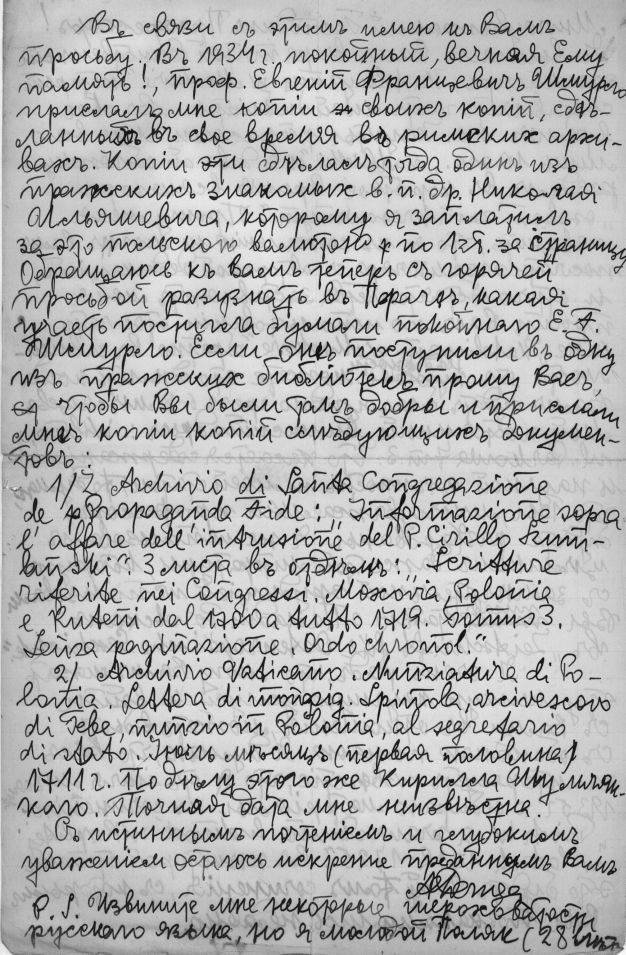 Въ связи съ этимъ имею къ Вамъ
просьбу. Въ 1934 г. покойный, вечная Ему
память!, проф. Евгений Францевичъ Шмурло
прислалъ мне копии своихъ копий, сдѣ-
ланныхъ въ свое время въ римских архи-
вахъ. Копии эти сдѣлалъ тогда одинъ изъ
пражскихъ знакомых в. п. др. Николай
Ильяшевича, которому я заплатилъ
за это польскою валютою по 1 zł. за страницу
Обращаюсь къ вамъ теперь съ горячей
просьбой разузнать въ Прагѣ, какая
участь постигла бумаги покойнаго Е. Ф.
Шмурло. Если онѣ поступили въ одну
изъ пражских библіотекъ, прошу Васъ,
чтобы Вы были тамъ добры и прислали
мнѣ копии копий слѣдующихъ докумен-
товъ:
1/ Archivio di Santa Congregazione
de Propaganda Fide: „Informazione sopra
l'affare dell'intrusione del P. Cirillo Szum-
lański". 3 листа въ отдѣлѣ: „Scritture
riferite nei Congressi. Moscovia, Polonia
e Ruteni dal 1700 a tutto 1719. Tomus 3.
Senza paginazione. Ordo chronol."
2/ Archivio Vaticano. Nunziatura di Po-
lonia. Lettera di monsig. Spinola, arcivescovo
di Tebe, nunzio in Polonia, al segretario
di stato. Июль мѣсяцъ (первая половина)
1711 г. По дѣлу этого же Кирилла Шумлян-
скаго. Точная дата мне неизвѣстна.
Съ истиннымъ почтениемъ и глубокимъ
уважением остаюсь искренне преданнымъ Вамъ
P. S. Извините мне некоторые шероховатости
русскаго языка, но я молодой Поляк (28 лѣтъ